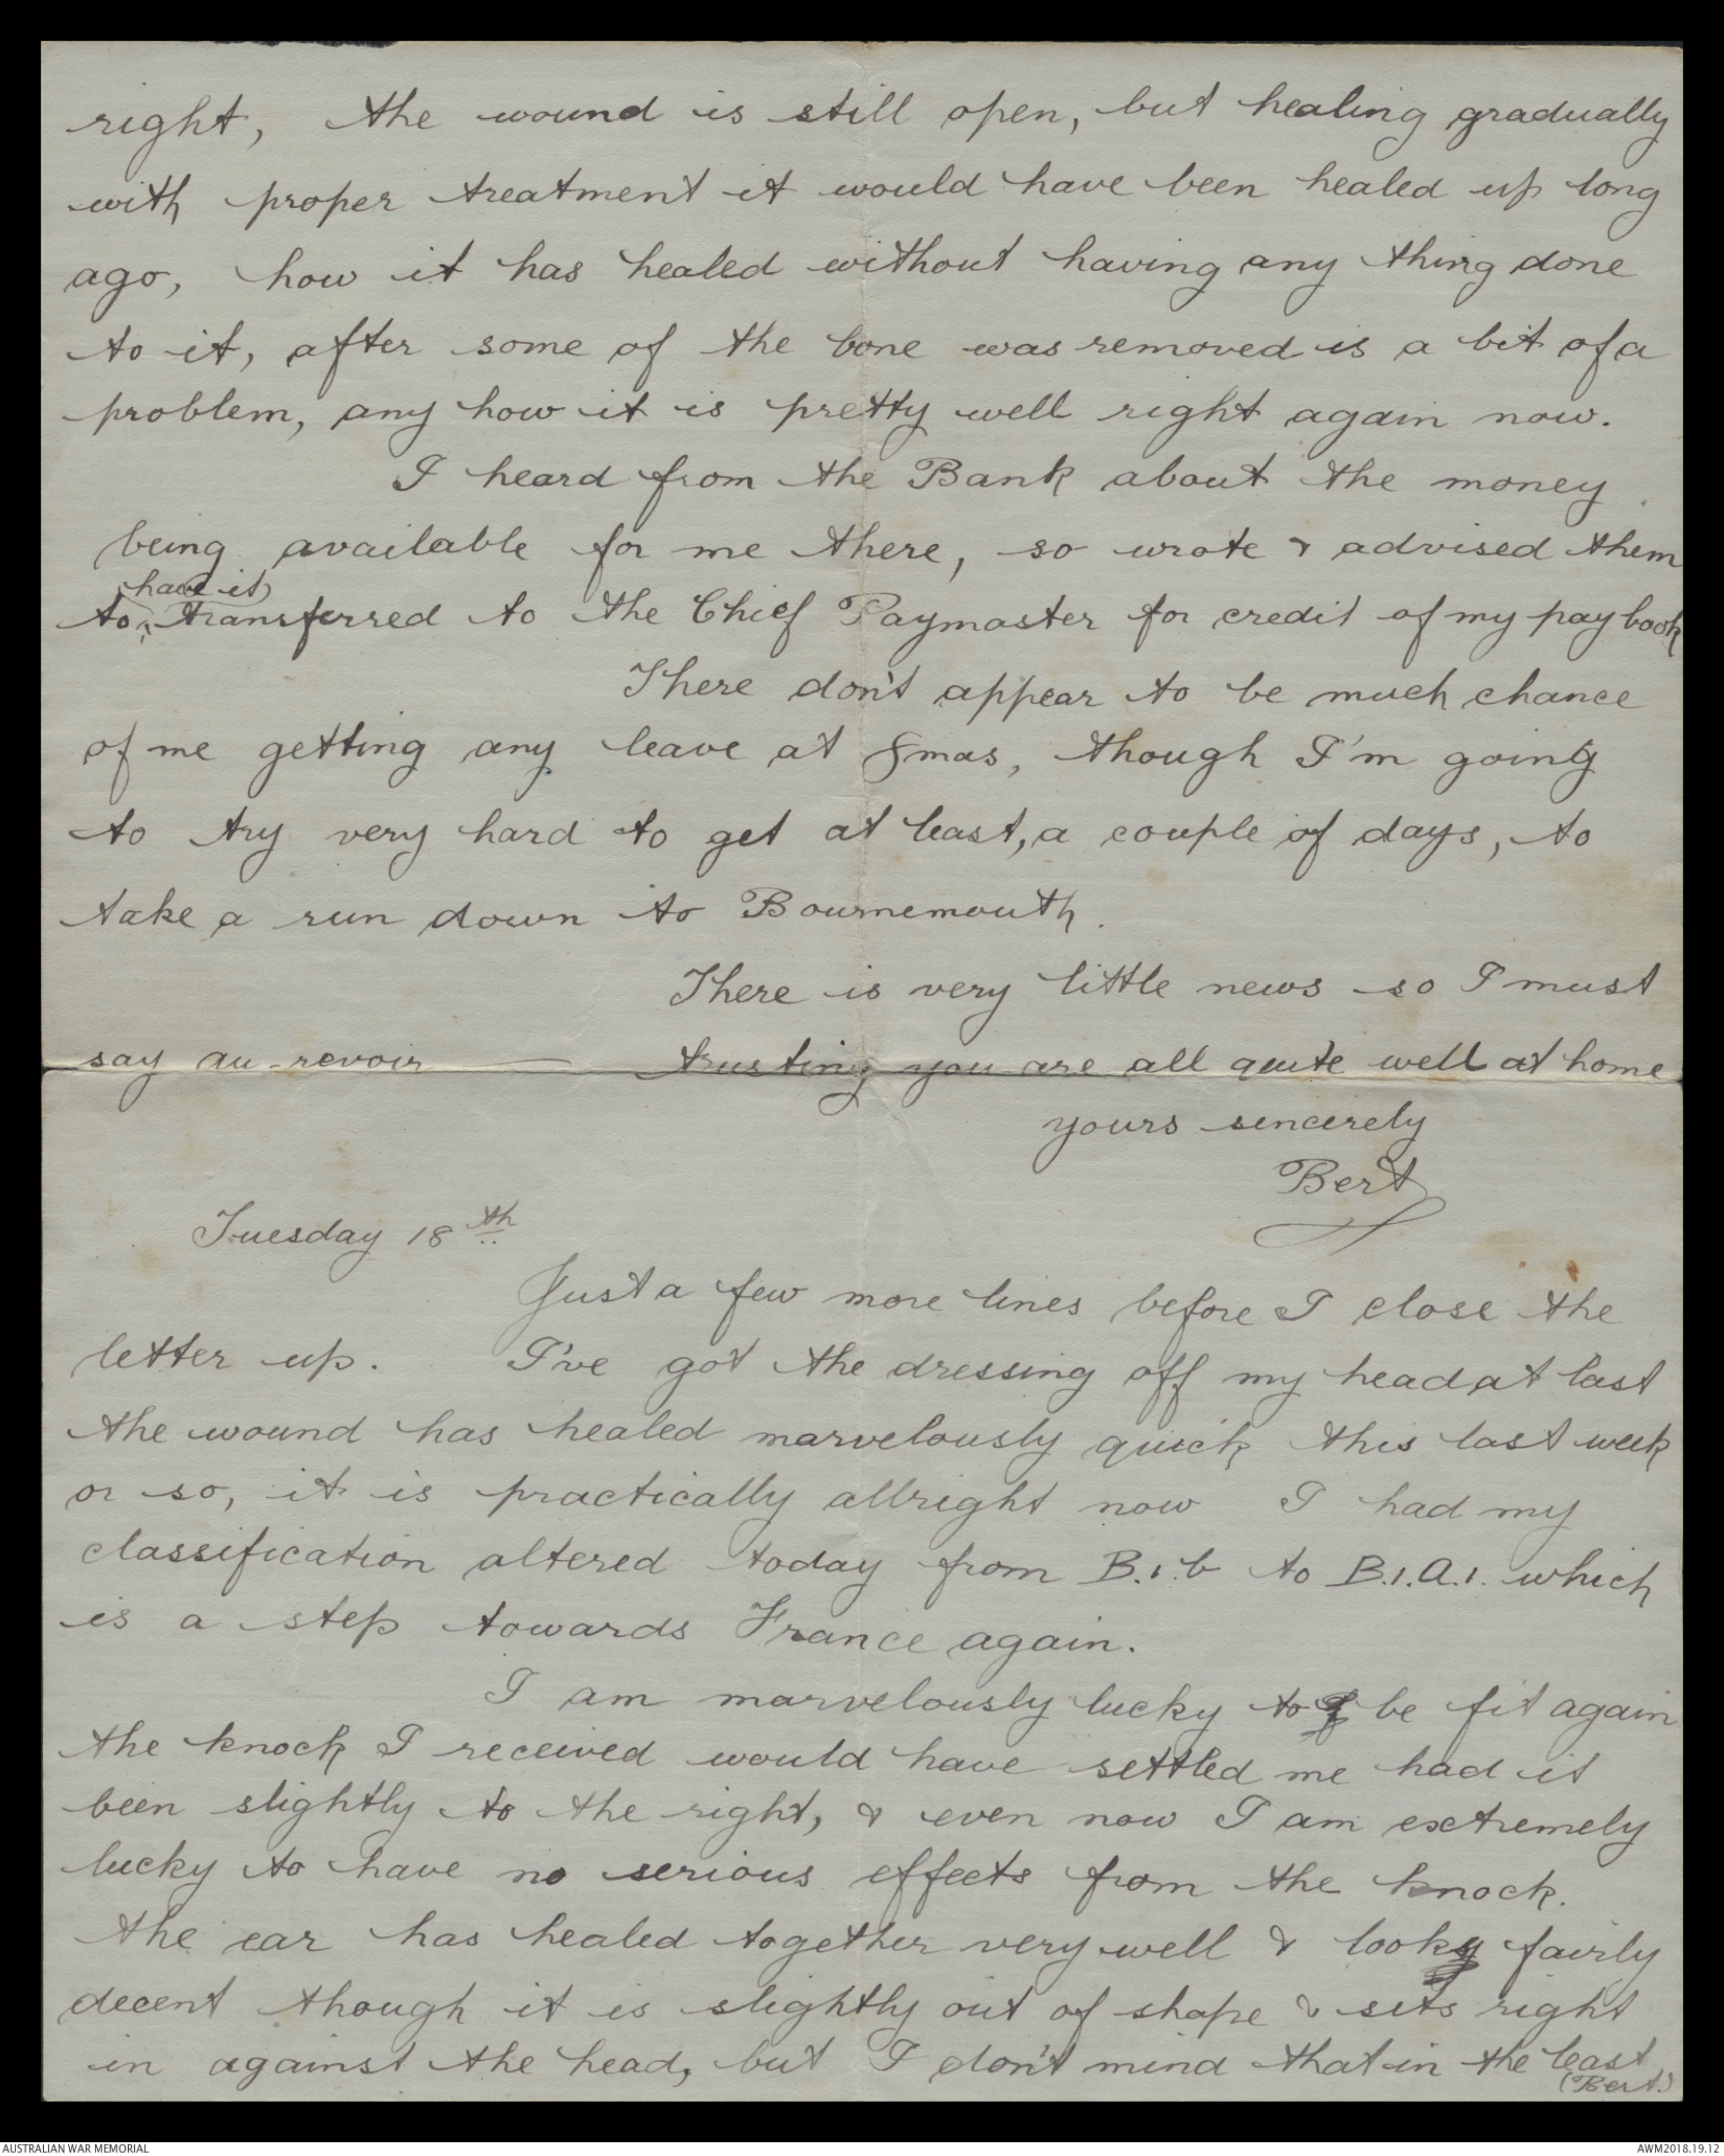 right, the wound is still open, but healing gradually
with proper treatment it would have been healed up long
ago, how it has healed without having any thing done
to it, after some of the bone was removed is a bit of a
problem, any how it is pretty well right again now.
I heard from the Bank about the money
being available for me there, so wrote & advised them
have it
to transferred to the Chief Paymaster for credit of my pay book
There don't appear to be much chance
of me getting any leave at Xmas, though I'm going
to try very hard to get at least, a couple of days, to
take a run down to Bournemouth.
There is very little news so I must
say au-revoir — trusting you are all quite well at home
yours sincerely
Bert
Tuesday 18th
Just a few more lines before I close the
letter up. I've got the dressing off my head at last
the wound has healed marvelously quick this last week
or so, it is practically allright now I had my
classification altered today from B.1.b to B.1.A.1. which
is a step towards France again.
I am marvelously lucky to be fit again
the knock I received would have settled me had it
been slightly to the right, & even now I am extremely
lucky to have no serious effects from the knock.
the ear has healed together very well & looks fairly
decent though it is slightly out of shape & sets right
in against the head, but I don't mind that in the least
(Bert.)
AUSTRALIAN WAR MEMORIAL
AWM2018.19.12